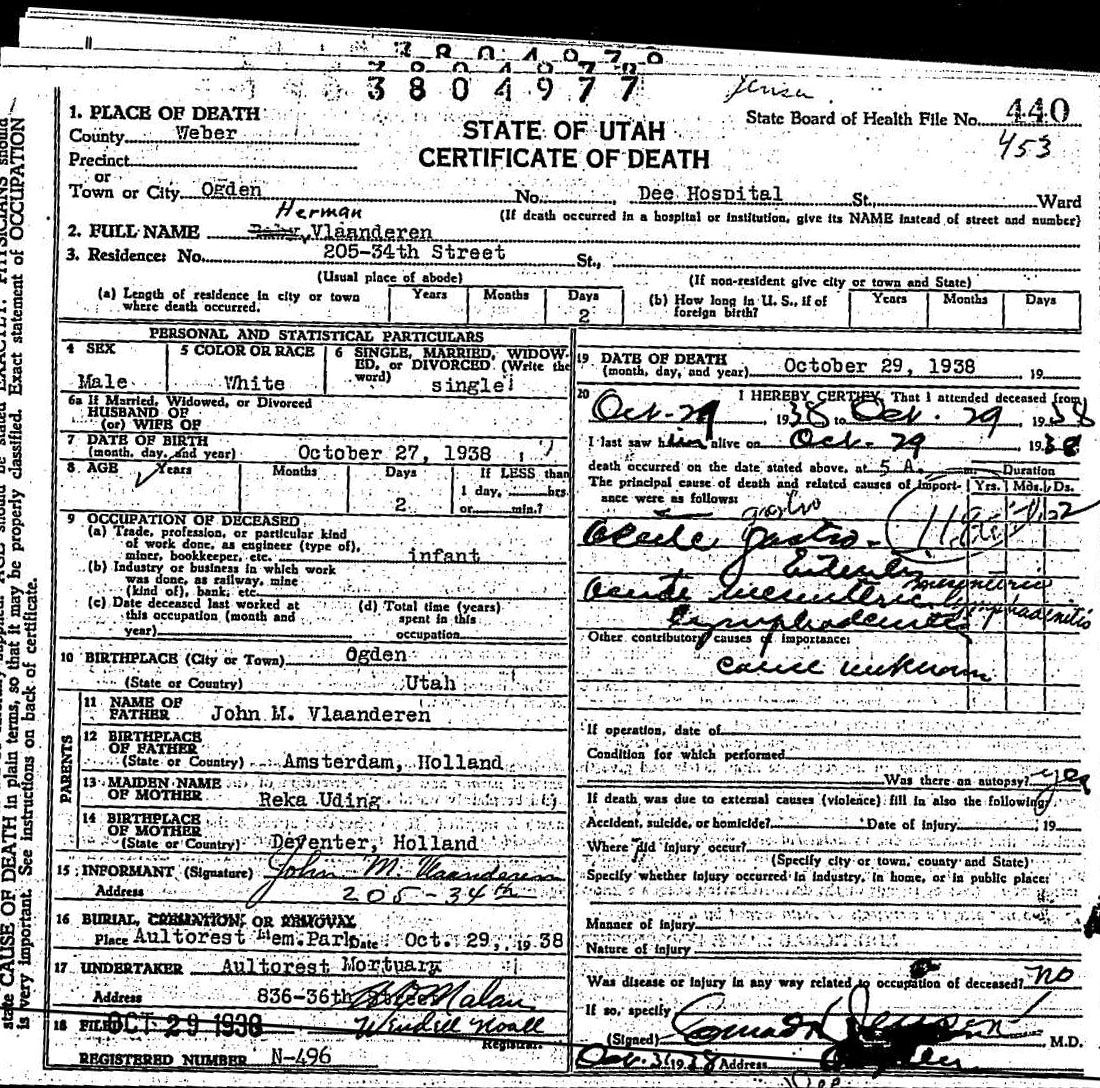 3804977
Jensen
State Board of Health File No. 440
453
STATE OF UTAH
CERTIFICATE OF DEATH
1. PLACE OF DEATH
County Weber
Precinct
or
Town or City Ogden No. Dee Hospital St., Ward
(If death occurred in a hospital or institution, give its NAME instead of street and number)
Herman
2. FULL NAME Baby Vlaanderen
3. Residence: No. 205-34th Street St.,
(Usual place of abode) (If non-resident give city or town and State)
(a) Length of residence in city or town where death occurred. Years Months Days 2
(b) How long in U. S., if of foreign birth? Years Months Days
PERSONAL AND STATISTICAL PARTICULARS
4 SEX Male
5 COLOR OR RACE White
6 SINGLE, MARRIED, WIDOWED, or DIVORCED (Write the word) single
6a If Married, Widowed, or Divorced
HUSBAND OF
(or) WIFE OF
7 DATE OF BIRTH
(month, day, and year) October 27, 1938
8 AGE Years Months Days 2 If LESS than 1 day, hrs. or min.?
9 OCCUPATION OF DECEASED
(a) Trade, profession, or particular kind
of work done, as engineer (type of),
miner, bookkeeper, etc. infant
(b) Industry or business in which work
was done, as railway, mine
(kind of), bank, etc.
(c) Date deceased last worked at
this occupation (month and
year)
(d) Total time (years)
spent in this
occupation
10 BIRTHPLACE (City or Town) Ogden
(State or Country) Utah
PARENTS
11 NAME OF
FATHER John M. Vlaanderen
12 BIRTHPLACE
OF FATHER
(State or Country) Amsterdam, Holland
13 MAIDEN NAME
OF MOTHER Reka Uding
14 BIRTHPLACE
OF MOTHER
(State or Country) Deventer, Holland
15 INFORMANT (Signature) John M. Vlaanderen
Address 205-34th
16 BURIAL, CREMATION, OR REMOVAL
Place Aultorest Mem. Park Date Oct. 29, 1938
17 UNDERTAKER Aultorest Mortuary
Address 836-36th Street Malan
18 FILED OCT 29 1938 Wendell Noall
Registrar.
REGISTERED NUMBER N-496
19 DATE OF DEATH
(month, day, and year) October 29, 1938 19
20 I HEREBY CERTIFY, That I attended deceased from
Oct-29 1938 to Oct. 29 1938
I last saw him alive on Oct-29 1938
death occurred on the date stated above, at 5 A. m. Duration
The principal cause of death and related causes of importance were as follows: Yrs. Mos. Ds.
gastro
Acute Gastro-
Enteritis
mesenteric
Acute mesenteric lymphadenitis
Lymphadenitis
Other contributory causes of importance:
cause unknown
If operation, date of
Condition for which performed
Was there an autopsy? yes
If death was due to external causes (violence) fill in also the following:
Accident, suicide, or homicide? Date of injury 19
Where did injury occur?
(Specify city or town, county and State)
Specify whether injury occurred in industry, in home, or in public place:
Manner of injury
Nature of injury
Was disease or injury in any way related to occupation of deceased? no
If so, specify
(Signed) Conrad H Jensen M.D.
Oct. 31 1938 Address Ogden
state CAUSE OF DEATH in plain terms, so that it may be properly classified. Exact statement of OCCUPATION
is very important. See instructions on back of certificate.